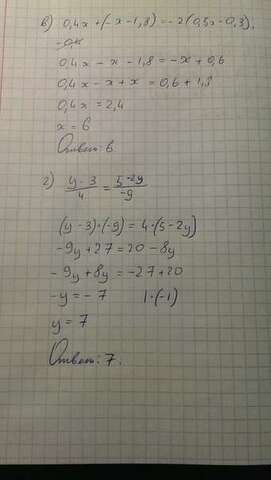 в) 0,4x+(-x-1,8)=-2(0,5x-0,3),
0,4x-x-1,8=-x+0,6
0,4x-x+x=0,6+1,8
0,4x=2,4
x=6
Ответ: 6
г) (y-3)/4=(5-2y)/-9
(y-3)·(-9)=4·(5-2y)
-9y+27=20-8y
-9y+8y=-27+20
-y=-7 |·(-1)
y=7
Ответ: 7.